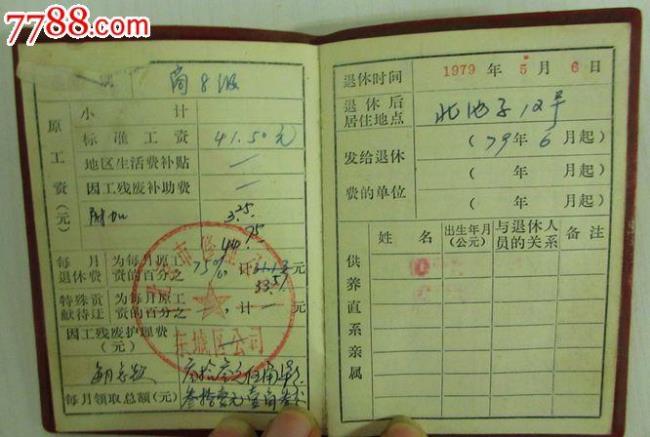 7788.com
商8级
原工资(元)
小计
标准工资 41.50元
地区生活费补贴 —
因工残废补助费 —
附加 3.25
44.75
每月退休费 为每月原工资的百分之 75%,计 元
33.57
特殊贡献待迂 为每月原工资的百分之 —,计 — 元
因工残废护理费(元)
每月领取总额(元)
东城区公司
退休时间 1979年5月6日
退休后居住地点 北池子12号
发给退休费的单位
(79年6月起)
( 年 月起)
( 年 月起)
供养直系亲属
姓名 出生年月(公元) 与退休人员的关系 备注